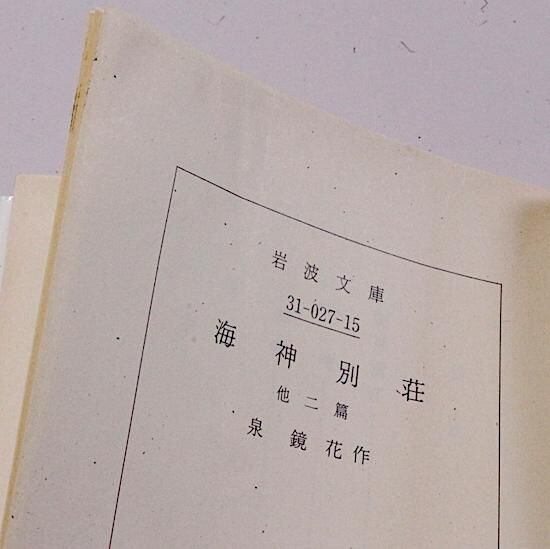 岩波文庫
31-027-15
海神別荘
他二篇
泉鏡花作